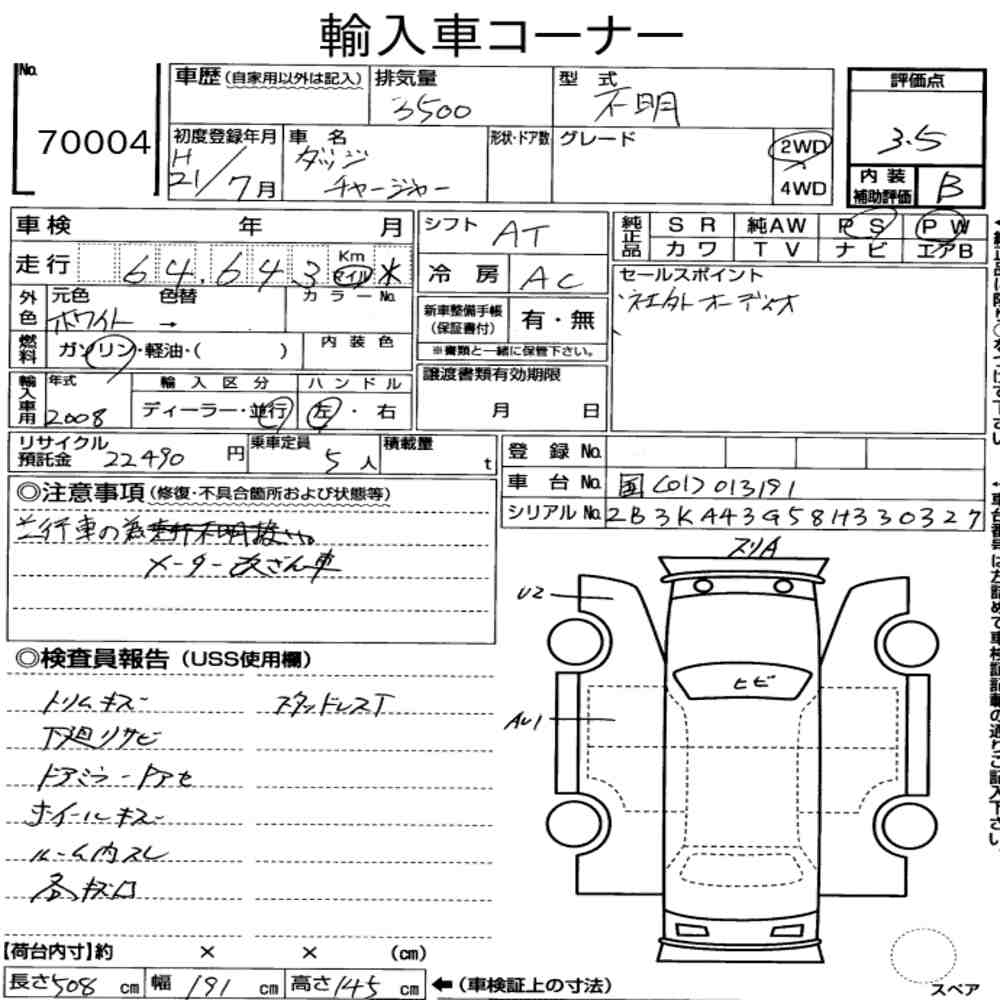 輸入車コーナー
No. 70004
車歴(自家用以外は記入)
排気量 3500
型式 不明
評価点 3.5
初度登録年月 H 21/7月
車名 ダッジ チャージャー
形状・ドア数
グレード
2WD
4WD
内装補助評価 B
車検 年 月
走行 64,643 Km マイル
外色 元色 ホワイト 色替 → カラーNo.
燃料 ガソリン・軽油・( )
内装色
輸入車用 年式 2008
輸入区分 ディーラー・並行
ハンドル 左・右
シフト AT
冷房 AC
新車整備手帳(保証書付) 有・無
※書類と一緒に保管下さい。
譲渡書類有効期限 月 日
純正品 SR 純AW PS PW
カワ TV ナビ エアB
セールスポイント
社外オーディオ
リサイクル預託金 22490円
乗車定員 5人
積載量 t
登録No.
車台No. 国[01]013191
シリアルNo. 2B3KA43G58H330327
◎注意事項(修復・不具合箇所および状態等)
並行車の為
メーター改ざん車
◎検査員報告(USS使用欄)
トリムキズ スタッドレスT
下廻りサビ
ドアミラー
ホイールキズ
ルーム内スレ
スリA
U2
ヒビ
AU1
【荷台内寸】約 × × (cm)
長さ508cm 幅191cm 高さ145cm ←(車検証上の寸法)
スペア